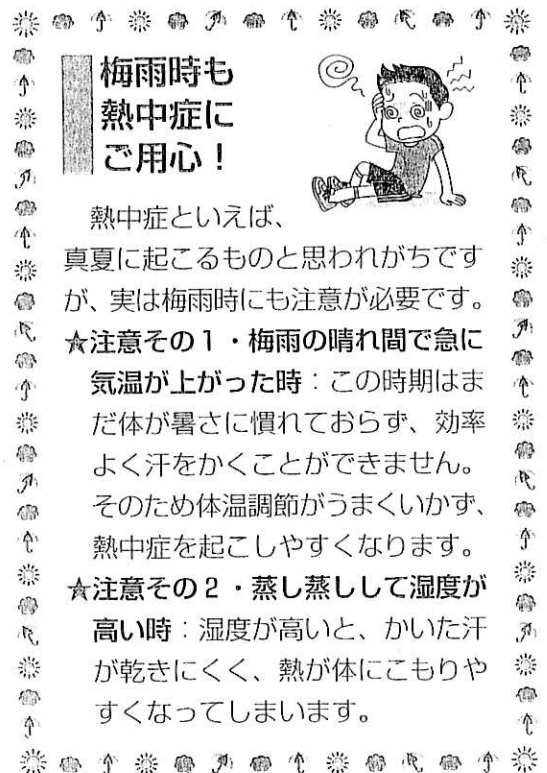 梅雨時も
熱中症に
ご用心！
熱中症といえば、
真夏に起こるものと思われがちです
が、実は梅雨時にも注意が必要です。
★注意その1・梅雨の晴れ間で急に
気温が上がった時：この時期はま
だ体が暑さに慣れておらず、効率
よく汗をかくことができません。
そのため体温調節がうまくいかず、
熱中症を起こしやすくなります。
★注意その2・蒸し蒸しして湿度が
高い時：湿度が高いと、かいた汗
が乾きにくく、熱が体にこもりや
すくなってしまいます。